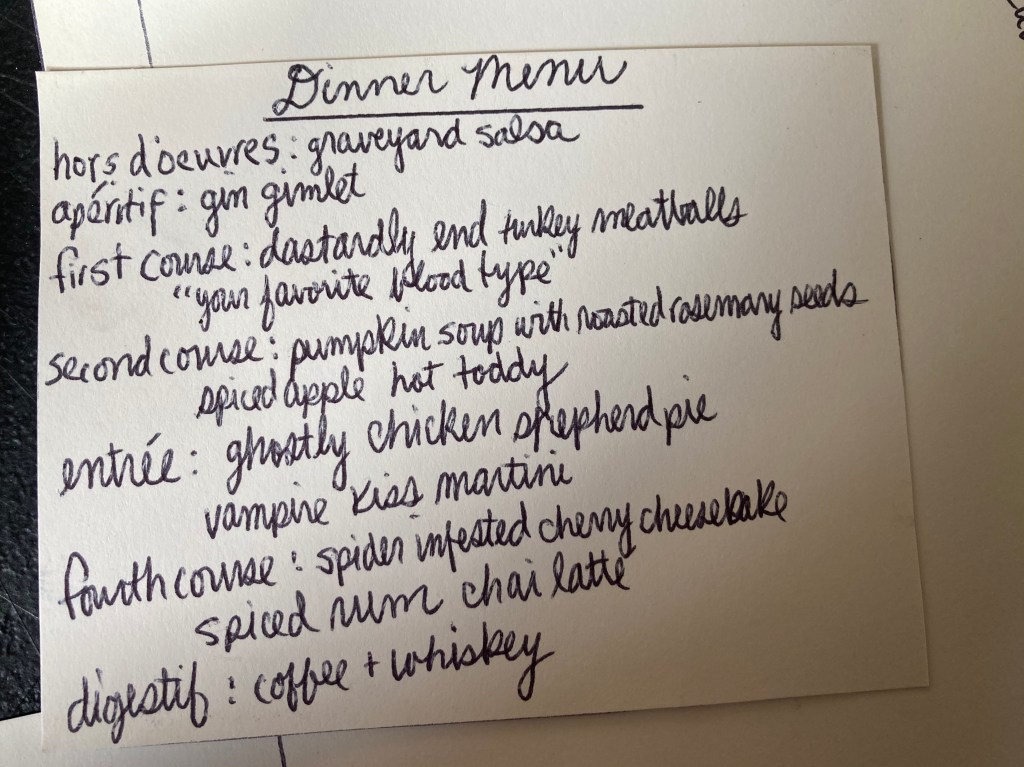 Dinner Menu
hors d'oeuvres: graveyard salsa
apéritif: gin gimlet
first course: dastardly end turkey meatballs
"your favorite blood type"
second course: pumpkin soup with roasted rosemary seeds
spiced apple hot toddy
entrée: ghostly chicken shepherd pie
vampire kiss martini
fourth course: spider infested cherry cheesebake
spiced rum chai latte
digestif: coffee + whiskey